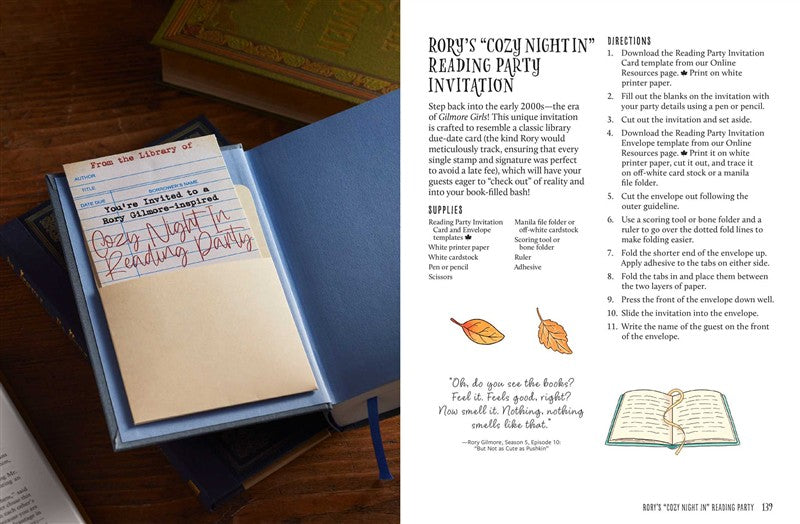 From the Library of
AUTHOR
TITLE
BORROWER'S NAME
DATE DUE
You're Invited to a
Rory Gilmore-inspired
Cozy Night In
Reading Party
RORY'S “COZY NIGHT IN”
READING PARTY
INVITATION
Step back into the early 2000s—the era
of Gilmore Girls! This unique invitation
is crafted to resemble a classic library
due-date card (the kind Rory would
meticulously track, ensuring that every
single stamp and signature was perfect
to avoid a late fee), which will have your
guests eager to “check out” of reality and
into your book-filled bash!
SUPPLIES
Reading Party Invitation
Card and Envelope
templates
White printer paper
White cardstock
Pen or pencil
Scissors
Manila file folder or
off-white cardstock
Scoring tool or
bone folder
Ruler
Adhesive
“Oh, do you see the books?
Feel it. Feels good, right?
Now smell it. Nothing, nothing
smells like that.”
—Rory Gilmore, Season 5, Episode 10:
“But Not as Cute as Pushkin”
DIRECTIONS
1. Download the Reading Party Invitation
Card template from our Online
Resources page. Print on white
printer paper.
2. Fill out the blanks on the invitation with
your party details using a pen or pencil.
3. Cut out the invitation and set aside.
4. Download the Reading Party Invitation
Envelope template from our Online
Resources page. Print it on white
printer paper, cut it out, and trace it
on off-white card stock or a manila
file folder.
5. Cut the envelope out following the
outer guideline.
6. Use a scoring tool or bone folder and a
ruler to go over the dotted fold lines to
make folding easier.
7. Fold the shorter end of the envelope up.
Apply adhesive to the tabs on either side.
8. Fold the tabs in and place them between
the two layers of paper.
9. Press the front of the envelope down well.
10. Slide the invitation into the envelope.
11. Write the name of the guest on the front
of the envelope.
RORY'S “COZY NIGHT IN” READING PARTY 139